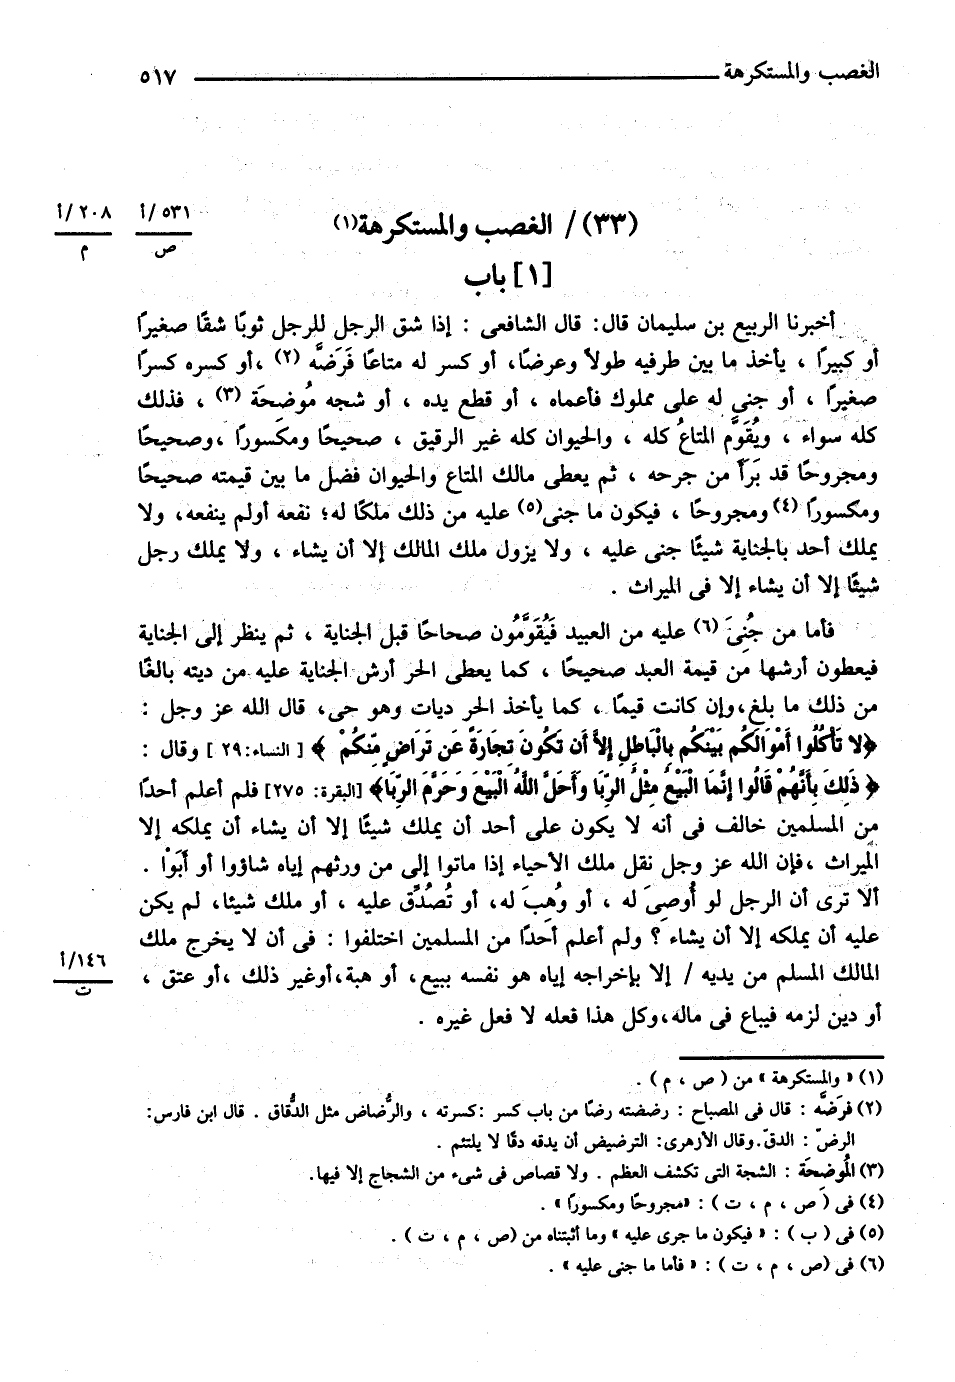 الغصب والمستكرهة ٥١٧
(٣٣) / الغصب والمستكرهة(١)
٥٣١/أ
ص
٢٠٨/أ
م
[١] باب
أخبرنا الربيع بن سليمان قال: قال الشافعى : إذا شق الرجل للرجل ثوبًا شقًا صغيرًا
أو كبيرًا ، يأخذ ما بين طرفيه طولاً وعرضًا، أو كسر له متاعًا فَرَضَّه (٢) ،أو كسره كسرًا
صغيرًا ، أو جنى له على مملوك فأعماه ، أو قطع يده ، أو شجه مُوضحَة (٣) ، فذلك
كله سواء ، ويُقَوَّم المتاعُ كله ، والحيوان كله غير الرقيق ، صحيحًا ومكسورًا ،وصحيحًا
ومجروحًا قد بَرَأ من جرحه ، ثم يعطى مالك المتاع والحيوان فضل ما بين قيمته صحيحًا
ومكسورًا (٤) ومجروحًا ، فيكون ما جنى(٥) عليه من ذلك ملكًا له؛ نفعه أولم ينفعه، ولا
يملك أحد بالجناية شيئًا جنى عليه ، ولا يزول ملك المالك إلا أن يشاء ، ولا يملك رجل
شيئًا إلا أن يشاء إلا فى الميراث .
فأما من جُنِىَ (٦) عليه من العبيد فَيُقَوَّمُون صحاحًا قبل الجناية ، ثم ينظر إلى الجناية
فيعطون أرشها من قيمة العبد صحيحًا ، كما يعطى الحر أرش الجناية عليه من ديته بالغًا
من ذلك ما بلغ،وإن كانت قيمًا ، كما يأخذ الحر ديات وهو حى، قال الله عز وجل :
﴿لا تَأْكُلُوا أَمْوَالَكُم بَيْنَكُم بِالْبَاطِلِ إِلاَّ أَن تَكُونَ تِجَارَةً عَن تَرَاضٍ مِّنكُمْ ﴾ [ النساء:٢٩ ] وقال :
﴿ ذَلِكَ بِأَنَّهُمْ قَالُوا إِنَّمَا الْبَيْعُ مِثْلُ الرِّبَا وَأَحَلَّ اللَّهُ الْبَيْعَ وَحَرَّمَ الرِّبَا﴾ [البقرة: ٢٧٥] فلم أعلم أحدًا
من المسلمين خالف فى أنه لا يكون على أحد أن يملك شيئًا إلا أن يشاء أن يملكه إلا
الميراث ،فإن الله عز وجل نقل ملك الأحياء إذا ماتوا إلى من ورثهم إياه شاؤوا أو أَبَوْا .
ألا ترى أن الرجل لو أُوصِىَ له ، أو وُهِبَ له، أو تُصُدِّق عليه ، أو ملك شيئا، لم يكن
عليه أن يملكه إلا أن يشاء ؟ ولم أعلم أحدًا من المسلمين اختلفوا : فى أن لا يخرج ملك
المالك المسلم من يديه / إلا بإخراجه إياه هو نفسه ببيع، أو هبة،أوغير ذلك ،أو عتق ،
١٤٦/أ
ت
أو دين لزمه فيباع فى ماله،وكل هذا فعله لا فعل غيره .
(١) « والمستكرهة » من ( ص ، م ) .
(٢) فرَضَّه : قال فى المصباح : رضضته رضًا من باب كسر :كسرته ، والرُّضاض مثل الدُّقاق . قال ابن فارس:
الرضّ : الدقّ.وقال الأزهرى: الترضيض أن يدقه دقًا لا يلتئم .
(٣) المُوضِحَة : الشجة التى تكشف العظم . ولا قصاص فى شىء من الشجاج إلا فيها.
(٤) فى ( ص ، م ، ت ) : «مجروحًا ومكسورًا » .
(٥) فى ( ب ) : « فيكون ما جرى عليه » وما أثبتناه من (ص ، م ، ت ) .
(٦) فى (ص ، م ، ت ) : « فأما ما جنى عليه » .